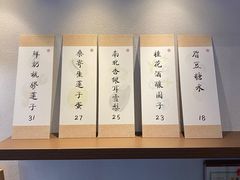 眉豆糖水
18
桂花酒釀圓子
23
南北杏銀耳雪梨
25
桑寄生蓮子蛋
27
鮮奶桃膠蓮子
31